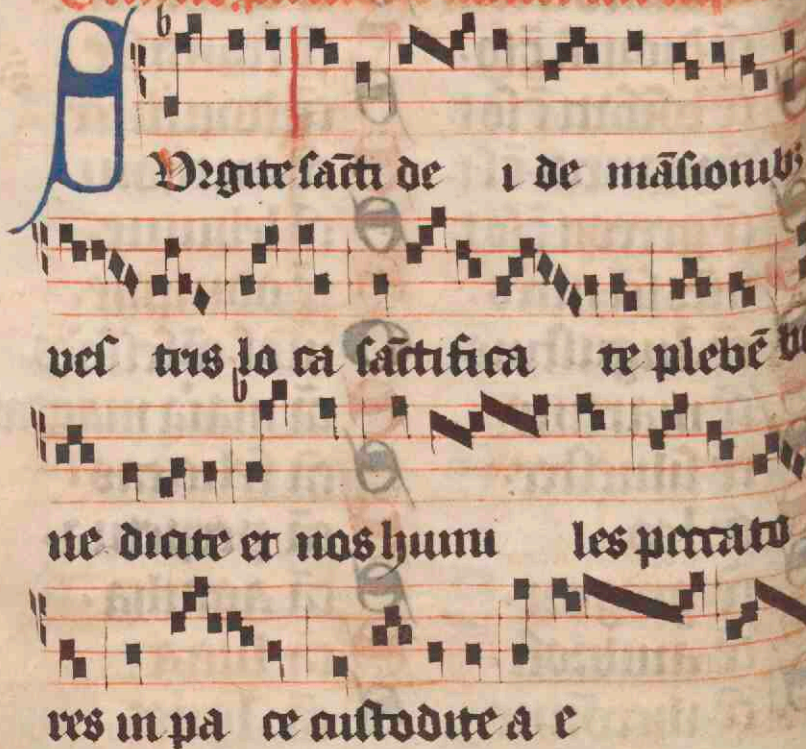 SVrgite sācti de i de māsionibꝫ
ves tris lo ca sāctifica te plebē be
ne dicite et nos humi les peccato
res in pa ce custodite a e